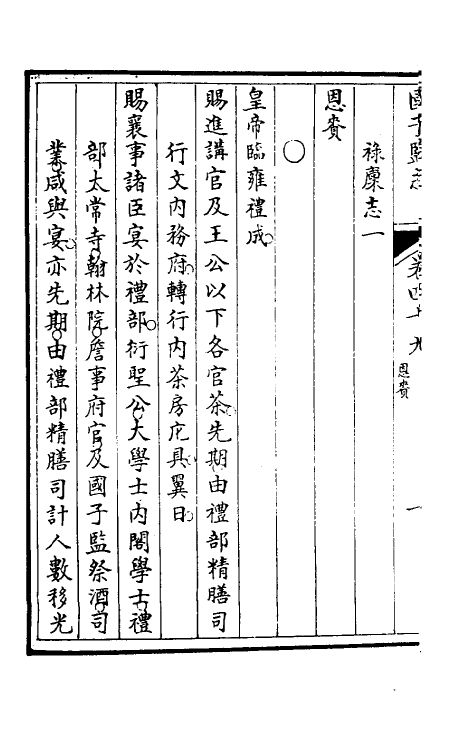 國子監志 卷四十九 恩賚 一
祿廩志一
恩賚
○
皇帝臨雍禮成
賜進講官及王公以下各官茶先期由禮部精膳司
行文内務府轉行内茶房庀具翼日
賜襄事諸臣宴於禮部衍聖公大學士内閣學士禮
部太常寺翰林院詹事府官及國子監祭酒司
業咸與宴亦先期由禮部精膳司計人數移光